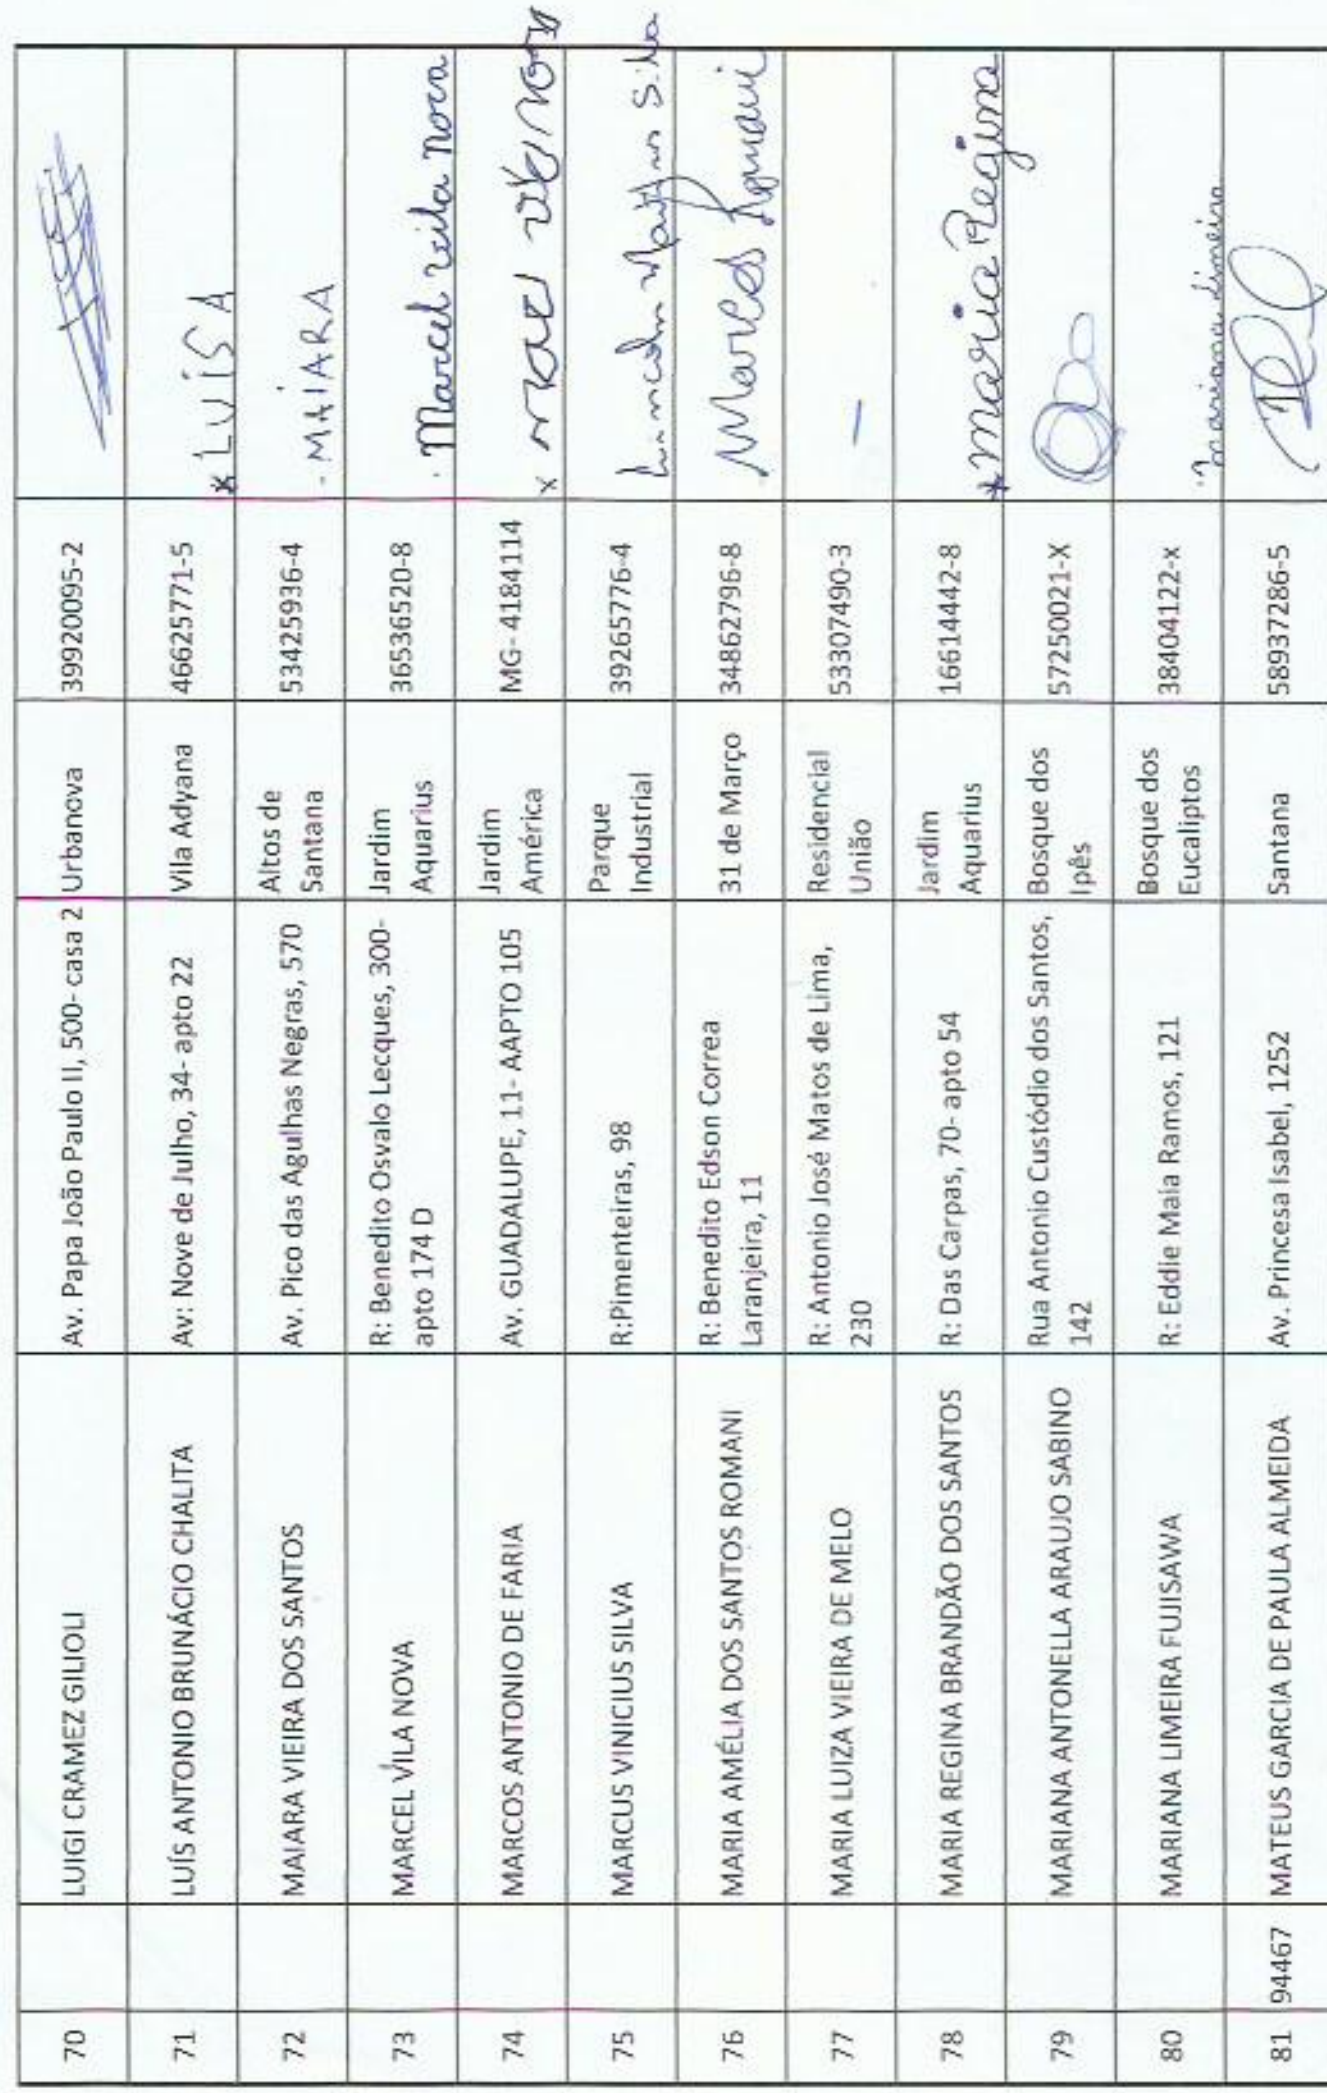 70 LUIGI CRAMEZ GILIOLI Av. Papa João Paulo II, 500- casa 2 Urbanova 39920095-2
71 LUÍS ANTONIO BRUNÁCIO CHALITA Av: Nove de Julho, 34- apto 22 Vila Adyana 46625771-5 x LUÍSA
72 MAIARA VIEIRA DOS SANTOS Av. Pico das Agulhas Negras, 570 Altos de Santana 53425936-4 MAIARA
73 MARCEL VILA NOVA R: Benedito Osvalo Lecques, 300- apto 174 D Jardim Aquarius 36536520-8 Marcel vila nova
74 MARCOS ANTONIO DE FARIA Av. GUADALUPE, 11- AAPTO 105 Jardim América MG- 4184114 x
75 MARCUS VINICIUS SILVA R:Pimenteiras, 98 Parque Industrial 39265776-4 Silva
76 MARIA AMÉLIA DOS SANTOS ROMANI R: Benedito Edson Correa Laranjeira, 11 31 de Março 34862796-8
77 MARIA LUIZA VIEIRA DE MELO R: Antonio José Matos de Lima, 230 Residencial União 53307490-3 —
78 MARIA REGINA BRANDÃO DOS SANTOS R: Das Carpas, 70- apto 54 Jardim Aquarius 16614442-8 x Maria Regina
79 MARIANA ANTONELLA ARAUJO SABINO Rua Antonio Custódio dos Santos, 142 Bosque dos Ipês 57250021-X
80 MARIANA LIMEIRA FUJISAWA R: Eddie Maia Ramos, 121 Bosque dos Eucaliptos 38404122-x mariana limeira
81 94467 MATEUS GARCIA DE PAULA ALMEIDA Av. Princesa Isabel, 1252 Santana 58937286-5